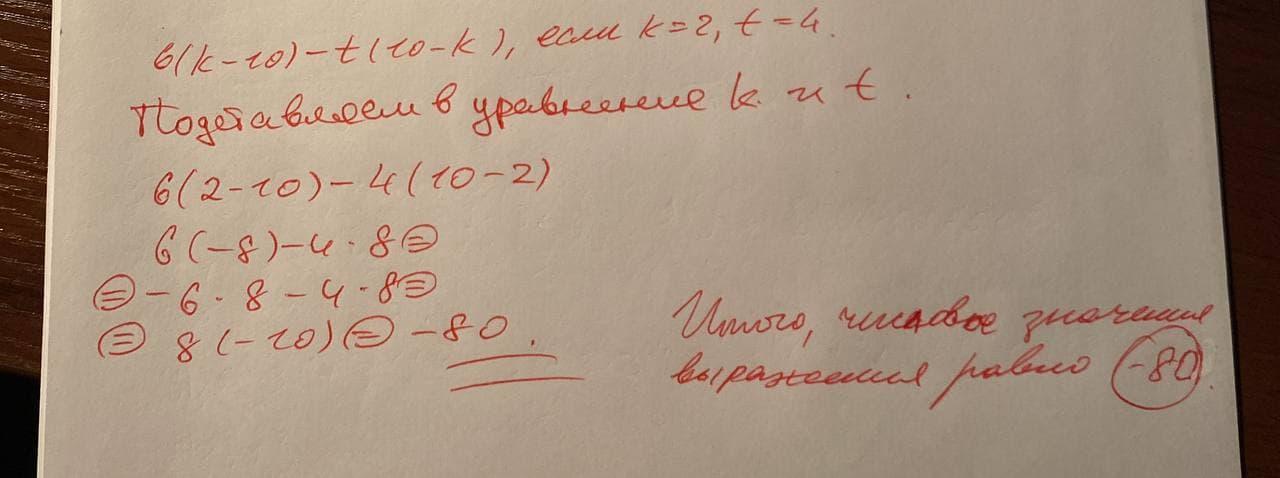 6(k-10)-t(10-k), если k=2, t=4.
Подставляем в уравнение k и t.
6(2-10)-4(10-2)
6(-8)-4·8=
=-6·8-4·8=
=8(-10)=-80.
Итого, числовое значение
выражения равно -80.